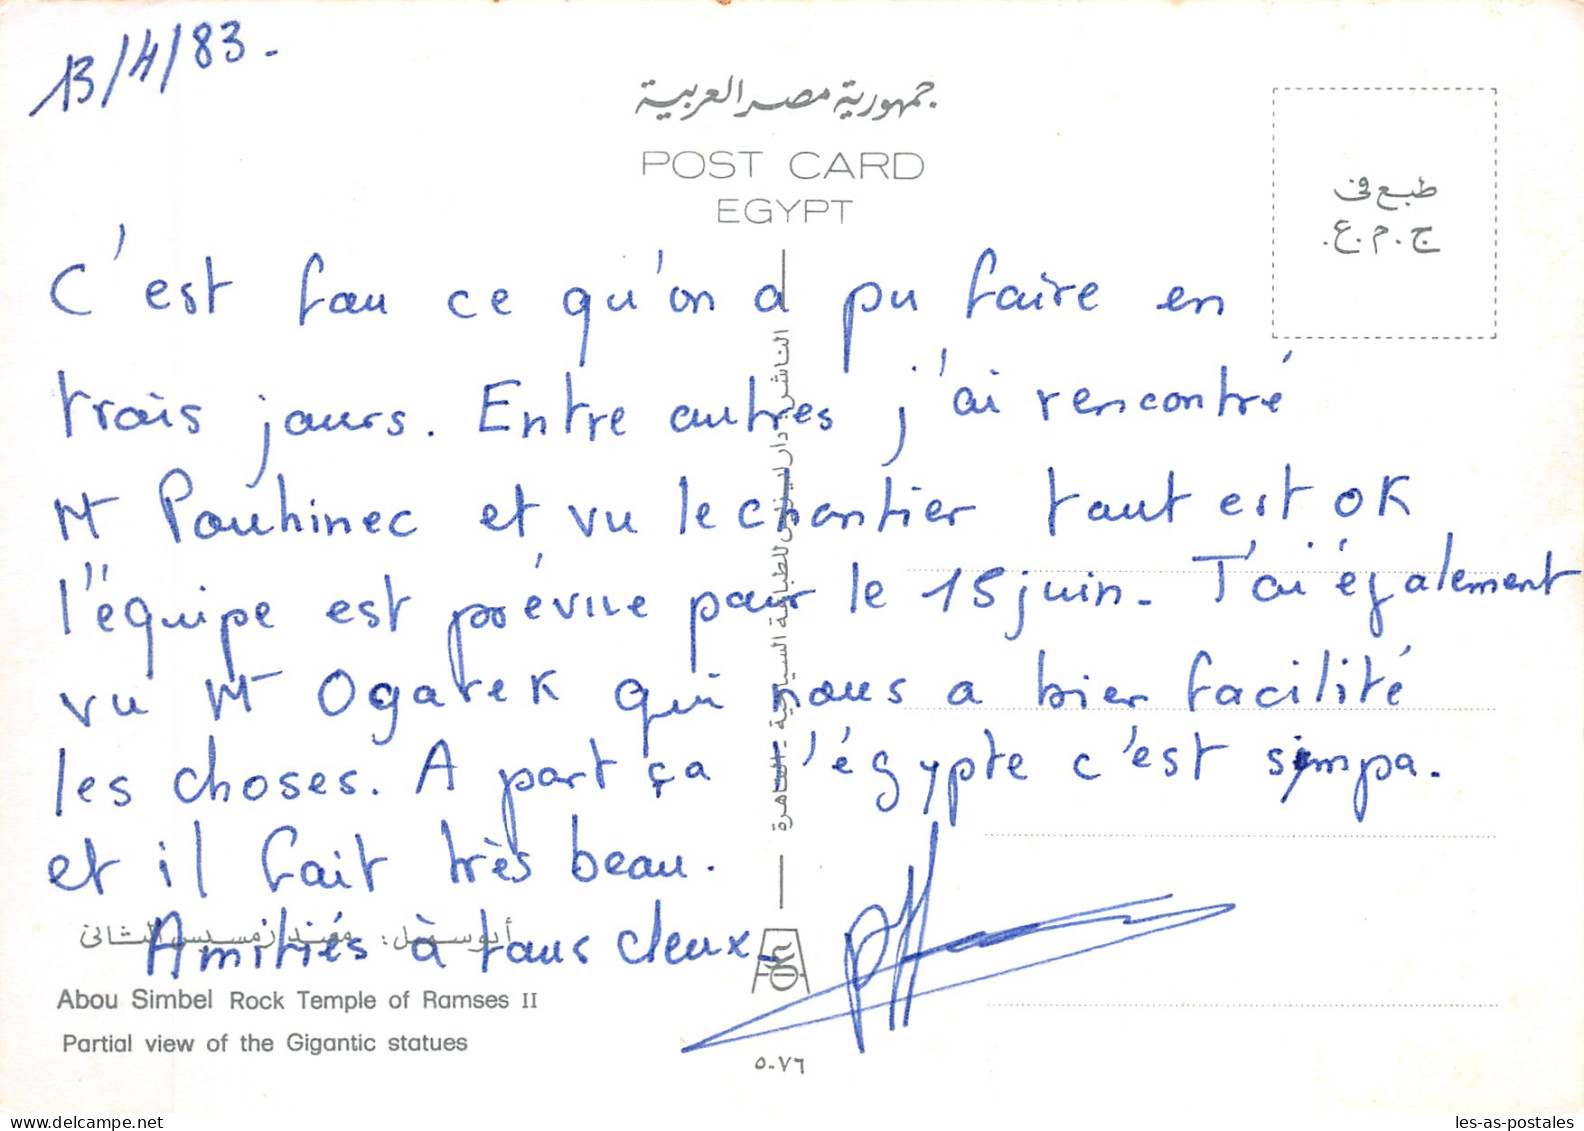 13/4/83.
جمهورية مصر العربية
POST CARD
EGYPT
طبع في
ج.م.ع.
C'est fou ce qu'on a pu faire en
trois jours. Entre autres j'ai rencontré
Mr Pouhinec et vu le chantier tout est OK
l'équipe est prévue pour le 15 juin. J'ai également
vu Mr Ogarek qui nous a bien facilité
les choses. A part ça l'égypte c'est sympa.
et il fait très beau.
Amitiés à tous deux.
الناشر: دار لينرت ولاندروك للطباعة السياحية - القاهرة
أبو سمبل: معبد رمسيس الثاني
Abou Simbel Rock Temple of Ramses II
Partial view of the Gigantic statues
٥٠٧٦
les-as-postales